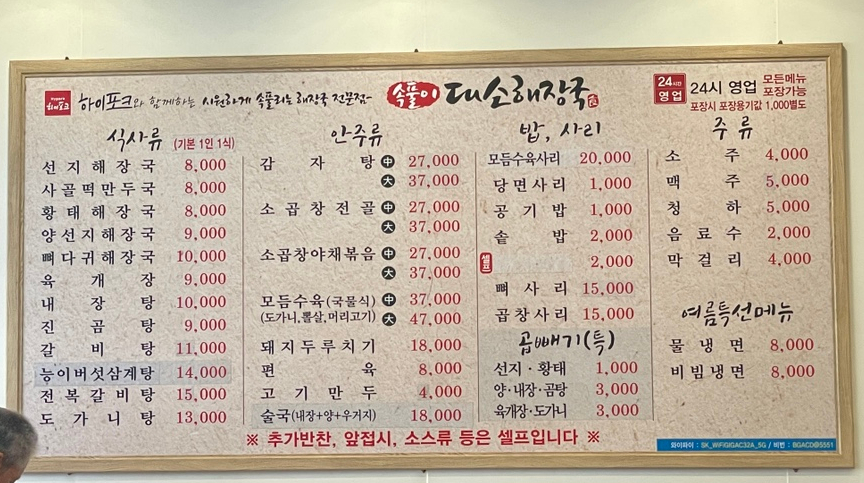 하이포크
하이포크와 함께하는 시원하게 속풀리는 해장국 전문점-
속풀이 다소해장국
24시간 영업
24시 영업 모든메뉴 포장가능
포장시 포장용기값 1,000별도
식사류 (기본 1인 1식)
선지해장국 8,000
사골떡만두국 8,000
황태해장국 8,000
양선지해장국 9,000
뼈다귀해장국 10,000
육개장 9,000
내장탕 10,000
진곰탕 9,000
갈비탕 11,000
능이버섯삼계탕 14,000
전복갈비탕 15,000
도가니탕 13,000
안주류
감자탕 中 27,000
大 37,000
소곱창전골 中 27,000
大 37,000
소곱창야채볶음 中 27,000
大 37,000
모듬수육(국물식) 中 37,000
(도가니,볼살,머리고기) 大 47,000
돼지두루치기 18,000
편육 8,000
고기만두 4,000
술국(내장+양+우거지) 18,000
밥, 사리
모듬수육사리 20,000
당면사리 1,000
공기밥 1,000
솥밥 2,000
셀프 2,000
뼈사리 15,000
곱창사리 15,000
곱빼기(특)
선지·황태 1,000
양·내장·곰탕 3,000
육개장·도가니 3,000
주류
소주 4,000
맥주 5,000
청하 5,000
음료수 2,000
막걸리 4,000
여름특선메뉴
물냉면 8,000
비빔냉면 8,000
※ 추가반찬, 앞접시, 소스류 등은 셀프입니다 ※
와이파이 : SK_WiFiGIGAC32A_5G / 비번 : BGACD@5551